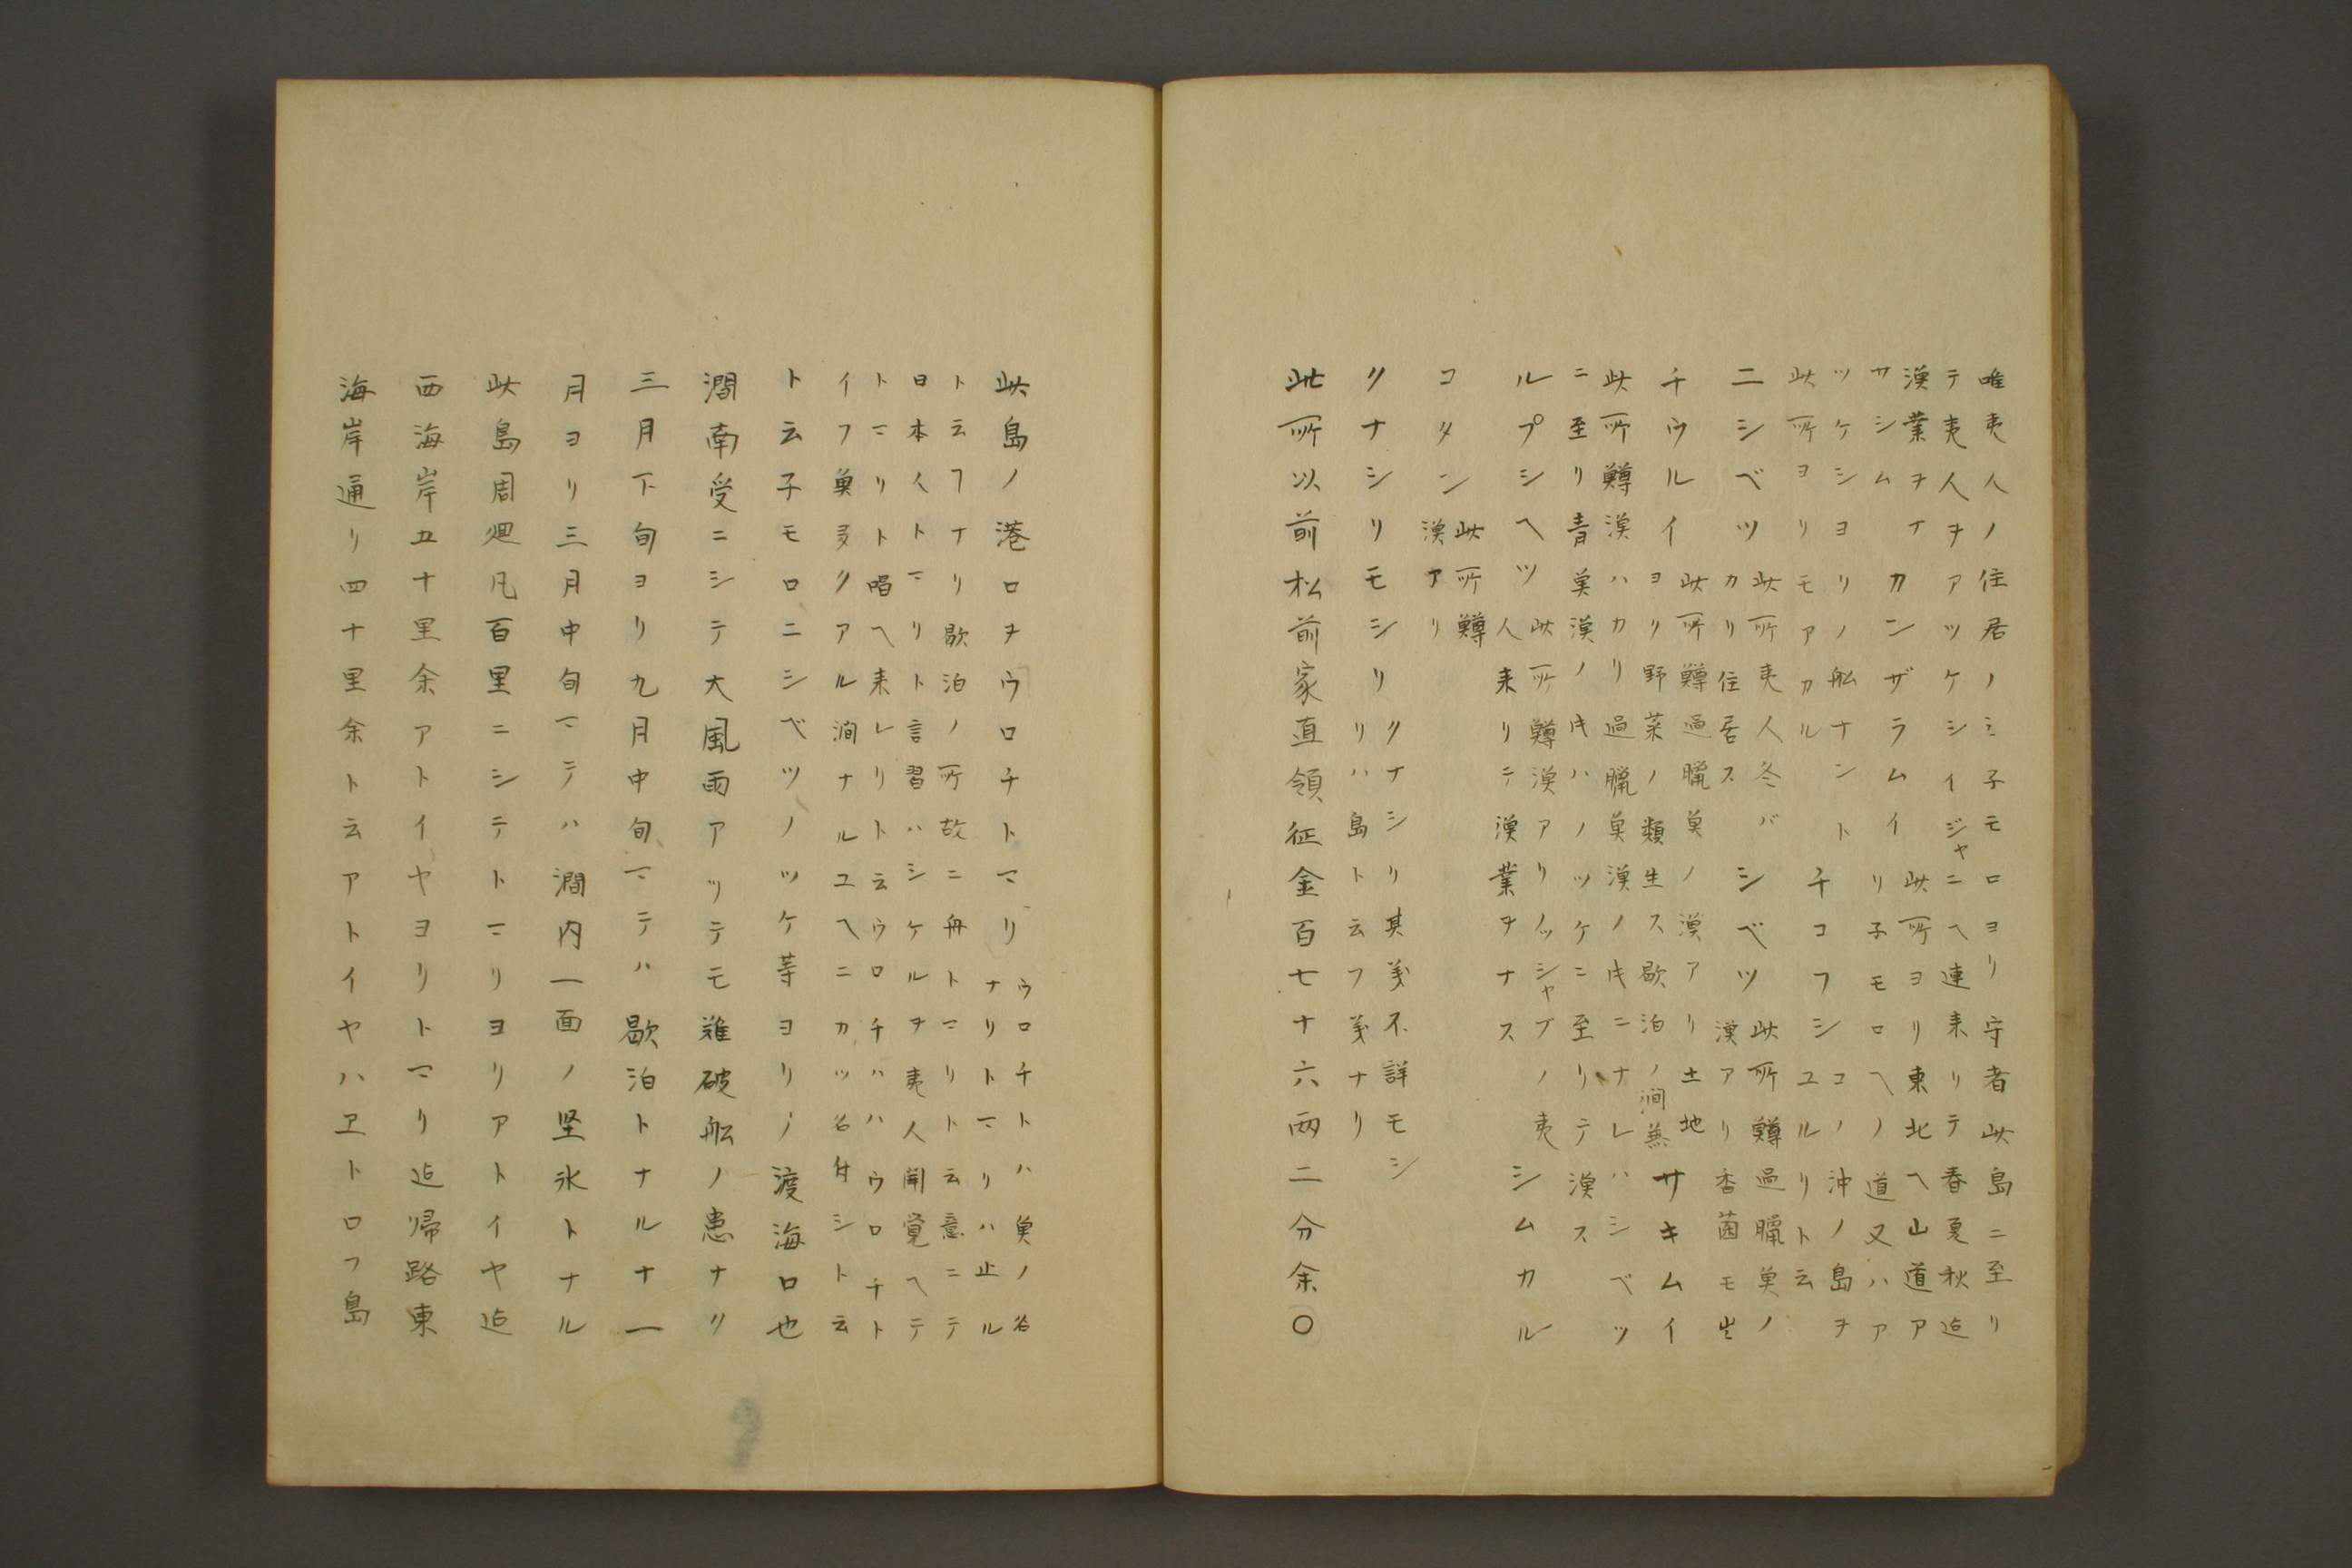 唯夷人ノ住居ノミ子モロヨリ守者此島ニ至リ
テ夷人ヲアツケシイジャニヘ連来リテ春夏秋迠
漁業ヲナ
サシム
カンザラムイ
此所ヨリ東北ヘ山道ア
リ子モロヘノ道又ハア
ツケシヨリノ舩ナント
此所ヨリモアカル
チコフシ
コノ沖ノ島ヲ
ユルリト云
ニシベツ
此所夷人冬バ
カリ住居ス
シベツ
此所鱒過臘魚ノ
漁アリ杏菌モ生
チウルイ
此所鱒過臘魚ノ漁アリ土地
ヨリ野菜ノ類生ス歇泊ノ澗無
サキムイ
此所鱒漁ハカリ過臘魚漁ノトキニナレハシベツ
ニ至リ青魚漁ノトキハノツケニ至リテ漁ス
ルプシヘツ
此所鱒漁アリノッシャブノ夷
人来リテ漁業ヲナス
シムカル
コタン
此所鱒
漁アリ
クナシリモシリ
クナシリ其義不詳モシ
リハ島ト云フ義ナリ
此所以前松前家直領征金百七十六兩二分余〇
此島ノ港口ヲウロチトマリ
ウロチトハ魚ノ名
ナリトマリハ止ル
ト云フナリ歇泊ノ所故ニ舟トマリト云意ニテ
日本人トマリト言習ハシケルヲ夷人聞覚ヘテ
トマリト唱ヘ来レリト云ウロチハハウロチト
イフ魚多クアル澗ナルユヘニカツ名付シト云
ト云子モロニシベツノツケ等ヨリノ渡海口也
澗南受ニシテ大風雨アツテモ難破舩ノ患ナク
三月下旬ヨリ九月中旬マテハ歇泊トナルナ一
月ヨリ三月中旬マテハ澗内一面ノ堅氷トナル
此島周廻凡百里ニシテトマリヨリアトイヤ迠
西海岸五十里余アトイヤヨリトマリ迠帰路東
海岸通リ四十里余ト云アトイヤハヱトロフ島